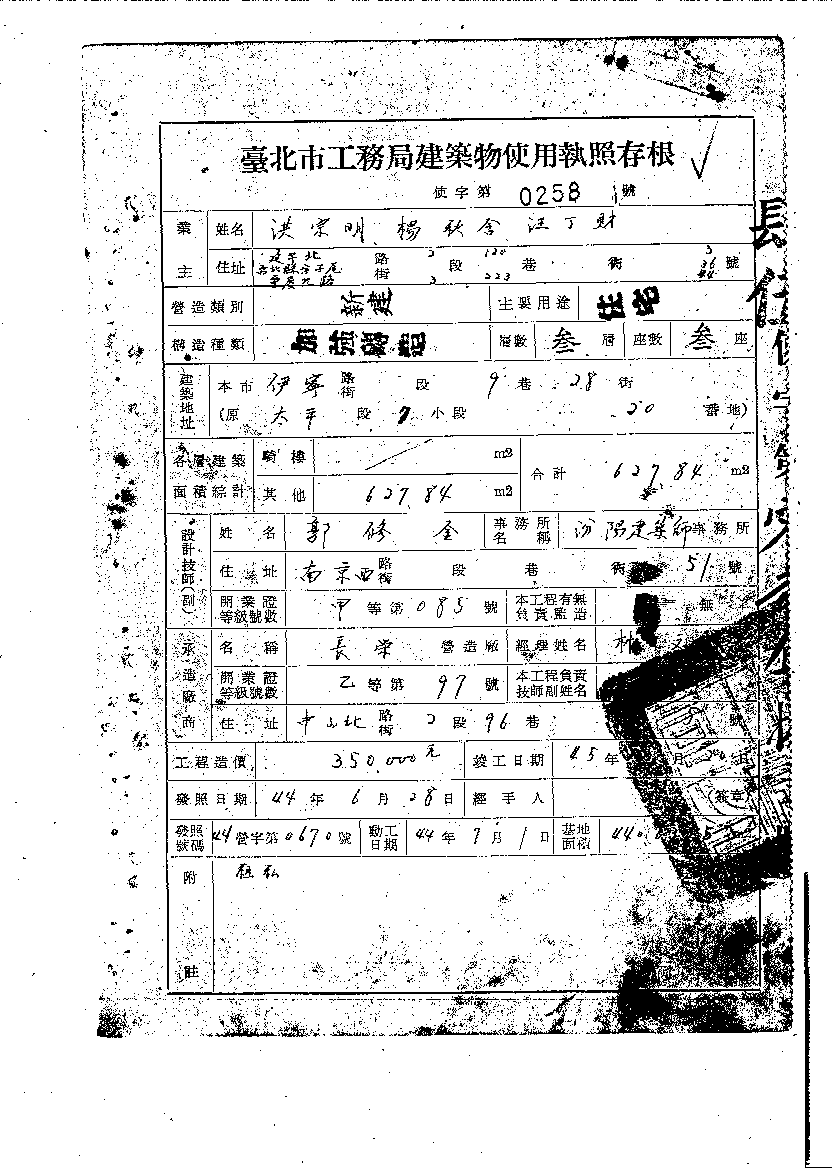 臺北市工務局建築物使用執照存根
使字第 0258 號
業主 姓名 洪宗明 楊 汪丁財
住址 路街 3段 120 223 巷 街 3 36 號
營造類別 新建 主要用途 住宅
構造種類 加強磚造 層數 叁層 座數 叁座
建築地址 本市 伊寧路街 段 9巷 28街
(原 太平 段 7 小段 20 番地)
各層建築面積綜計 騎樓 / m2 合計 627.84 m2
其他 627.84 m2
設計技師(副) 姓名 郭修全 事務所名稱 汾陽建築師事務所
住址 南京西路街 段 巷 街 51號
開業證等級號數 甲等第085號 本工程有無負責監造 無
承造廠商 名稱 長榮營造廠 經理姓名 林
開業證等級號數 乙等第97號 本工程負責技師副姓名
住址 中山北路街 2段96巷 號
工程造價 350,000元 竣工日期 45年 月 日
發照日期 44年6月28日 經手人 (簽章)
發照號碼 44營字第0670號 動工日期 44年7月1日 基地面積 440
附註